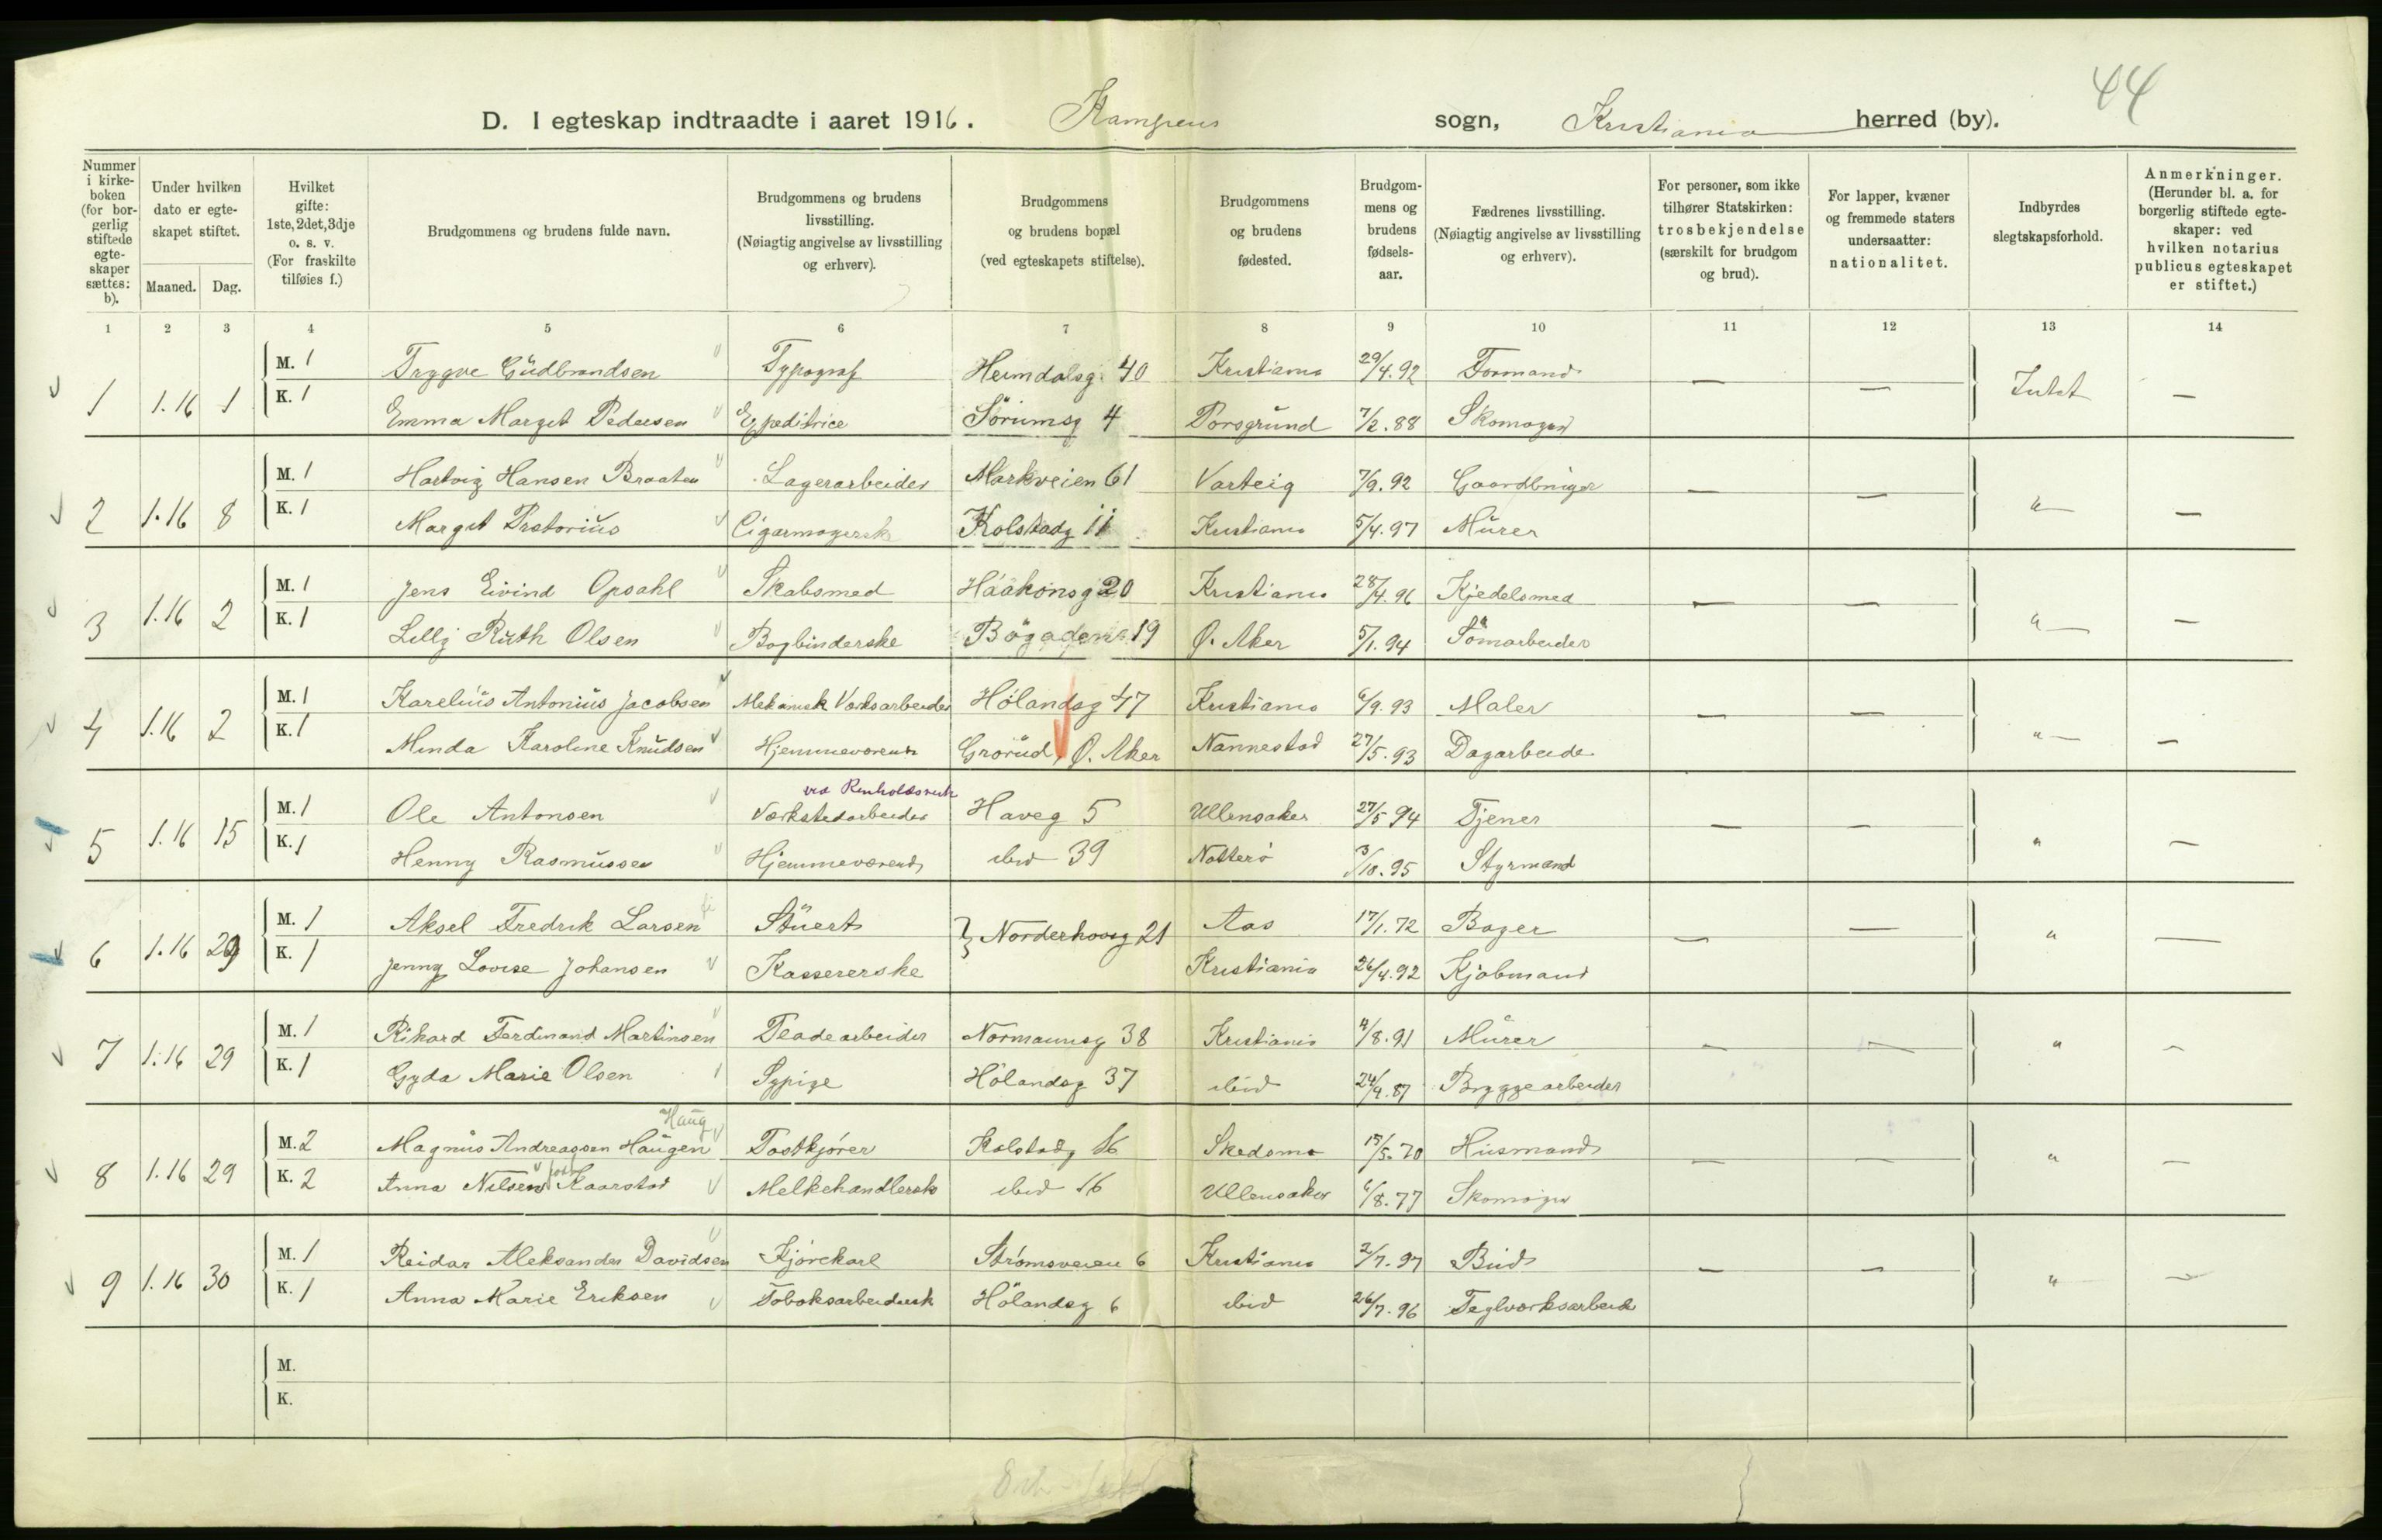 44
D. I egteskap indtraadte i aaret 1916. Kampens sogn, Kristiania herred (by).
Nummer i kirkeboken (for borgerlig stiftede egteskaper sættes: b).
Under hvilken dato er egteskapet stiftet.
Maaned. Dag.
Hvilket gifte: 1ste, 2det, 3dje o. s. v. (For fraskilte tilføies f.)
Brudgommens og brudens fulde navn.
Brudgommens og brudens livsstilling. (Nøiagtig angivelse av livsstilling og erhverv).
Brudgommens og brudens bopæl (ved egteskapets stiftelse).
Brudgommens og brudens fødested.
Brudgommens og brudens fødselsaar.
Fædrenes livsstilling. (Nøiagtig angivelse av livsstilling og erhverv).
For personer, som ikke tilhører Statskirken: trosbekjendelse (særskilt for brudgom og brud).
For lapper, kvæner og fremmede staters undersaatter: nationalitet.
Indbyrdes slegtskapsforhold.
Anmerkninger. (Herunder bl. a. for borgerlig stiftede egteskaper: ved hvilken notarius publicus egteskapet er stiftet.)
1 2 3 4 5 6 7 8 9 10 11 12 13 14
1 1.16 1 M. 1 Trygve Gudbrandsen Typograf Heimdalsg. 40 Kristiania 29/4.92 Formand — — Intet —
K. 1 Emma Margit Pedersen Expeditrice Sörumsg 4 Porsgrund 7/2.88 Skomager
2 1.16 8 M. 1 Hartvig Hansen Braaten Lagerarbeider Markveien 61 Varteig 7/9.92 Gaardbruger — — " —
K. 1 Margit Pretorius Cigarmagerske Kolstadg 11 Kristiania 5/4.97 Murer
3 1.16 2 M. 1 Jens Eivind Opsahl Skabsmed Haakonsg 20 Kristiania 28/4.96 Kjedelsmed — — " —
K. 1 Lilly Ruth Olsen Bogbinderske Bögadens 19 Ø. Aker 5/1.94 Tömarbeider
4 1.16 2 M. 1 Karelius Antonius Jacobsen Mekanisk Verksarbeider Hölandsg 47 Kristiania 6/9.93 Maler — — " —
K. 1 Minda Karoline Knudsen Hjemmeværende Grorud, Ø. Aker Nannestad 27/5.93 Dagarbeide
ved Renholdsverk
5 1.16 15 M. 1 Ole Antonsen Verkstedarbeider Haveg 5 Ullensaker 27/5 94 Tjener — — " —
K. 1 Henny Rasmussen Hjemmeværende ibid 39 Nøtterö 3/10.95 Styrmand
6 1.16 29 M. 1 Aksel Fredrik Larsen Stuert } Norderhovsg 21 Aas 17/1.72 Bager — — " —
K. 1 Jenny Lovise Johansen Kassererske Kristiania 26/4.92 Kjøbmand
7 1.16 29 M. 1 Rikard Ferdinand Martinsen Traadearbeider Normannsg 38 Kristiania 4/8.91 Murer — — " —
K. 1 Gyda Marie Olsen Sypige Hölandsg 37 ibid 24/9.87 Bryggearbeider
Haug
8 1.16 29 M. 2 Magnus Andreassen Haugen Postkjører Kolstadg 16 Skedsmo 15/5.70 Husmand — — " —
K. 2 Anna Nilsen Kaarstad Melkehandlerske ibid 16 Ullensaker 6/8.77 Skomager
9 1.16 30 M. 1 Reidar Aleksander Davidsen Kjørekarl Strömsveien 6 Kristiania 2/7.97 Bud — — " —
K. 1 Anna Marie Eriksen Tobaksarbeiderske Hölandsg 6 ibid 26/7.96 Teglverksarbeide
M.
K.